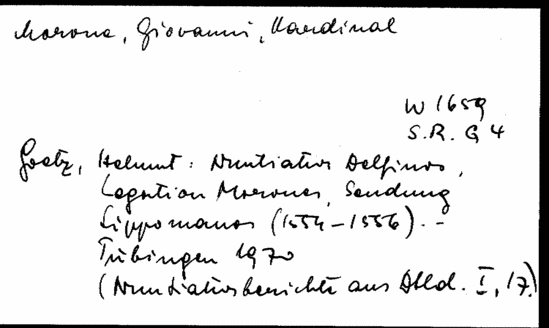 Morone, Giovanni, Kardinal
W 1659
S.R. G 4
Goetz, Helmut: Nuntiatur Delfinos,
Legation Morones, Sendung
Lippomanos (1554-1556). -
Tübingen 1970
(Nuntiaturberichte aus Dtld. I, 17.)